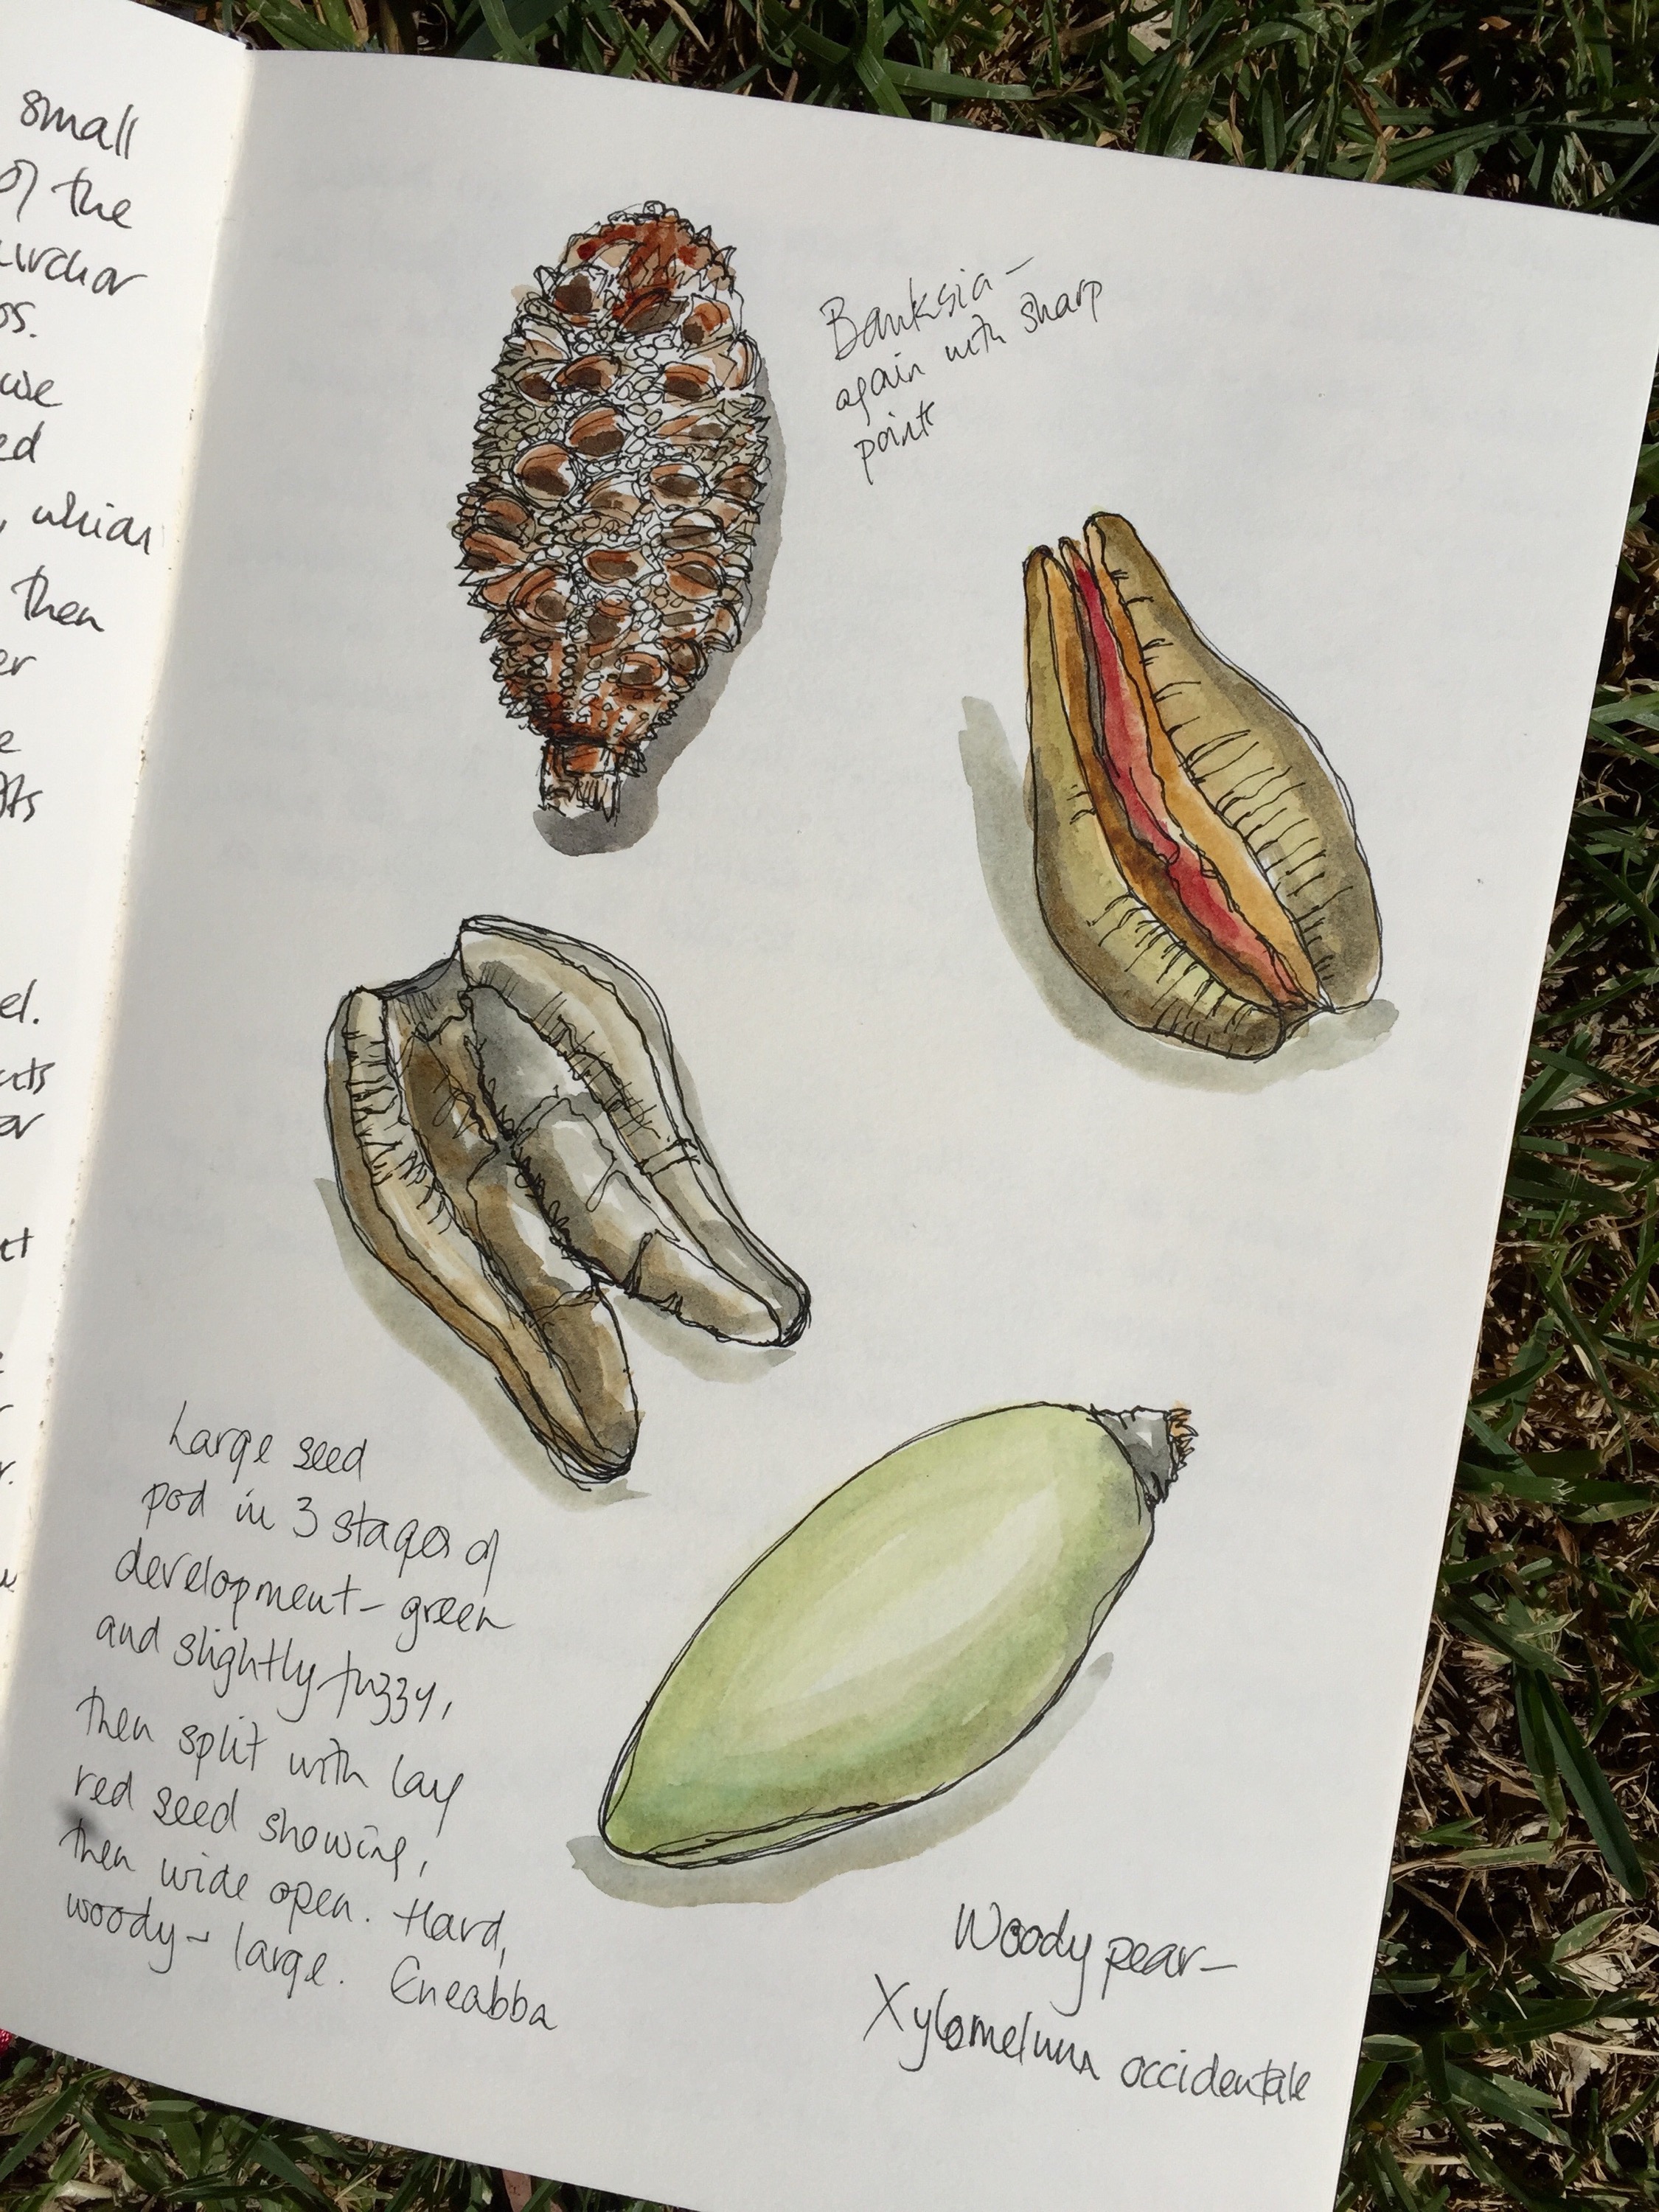 small
of the
os.
we
ed
, which
then
er
e
el.
er
r.
Banksia —
again with sharp
points
Large seed
pod in 3 stages of
development - green
and slightly fuzzy,
then split with
red seed showing,
then wide open. Hard,
woody - large. Eneabba
Woody pear -
Xylomelum occidentale